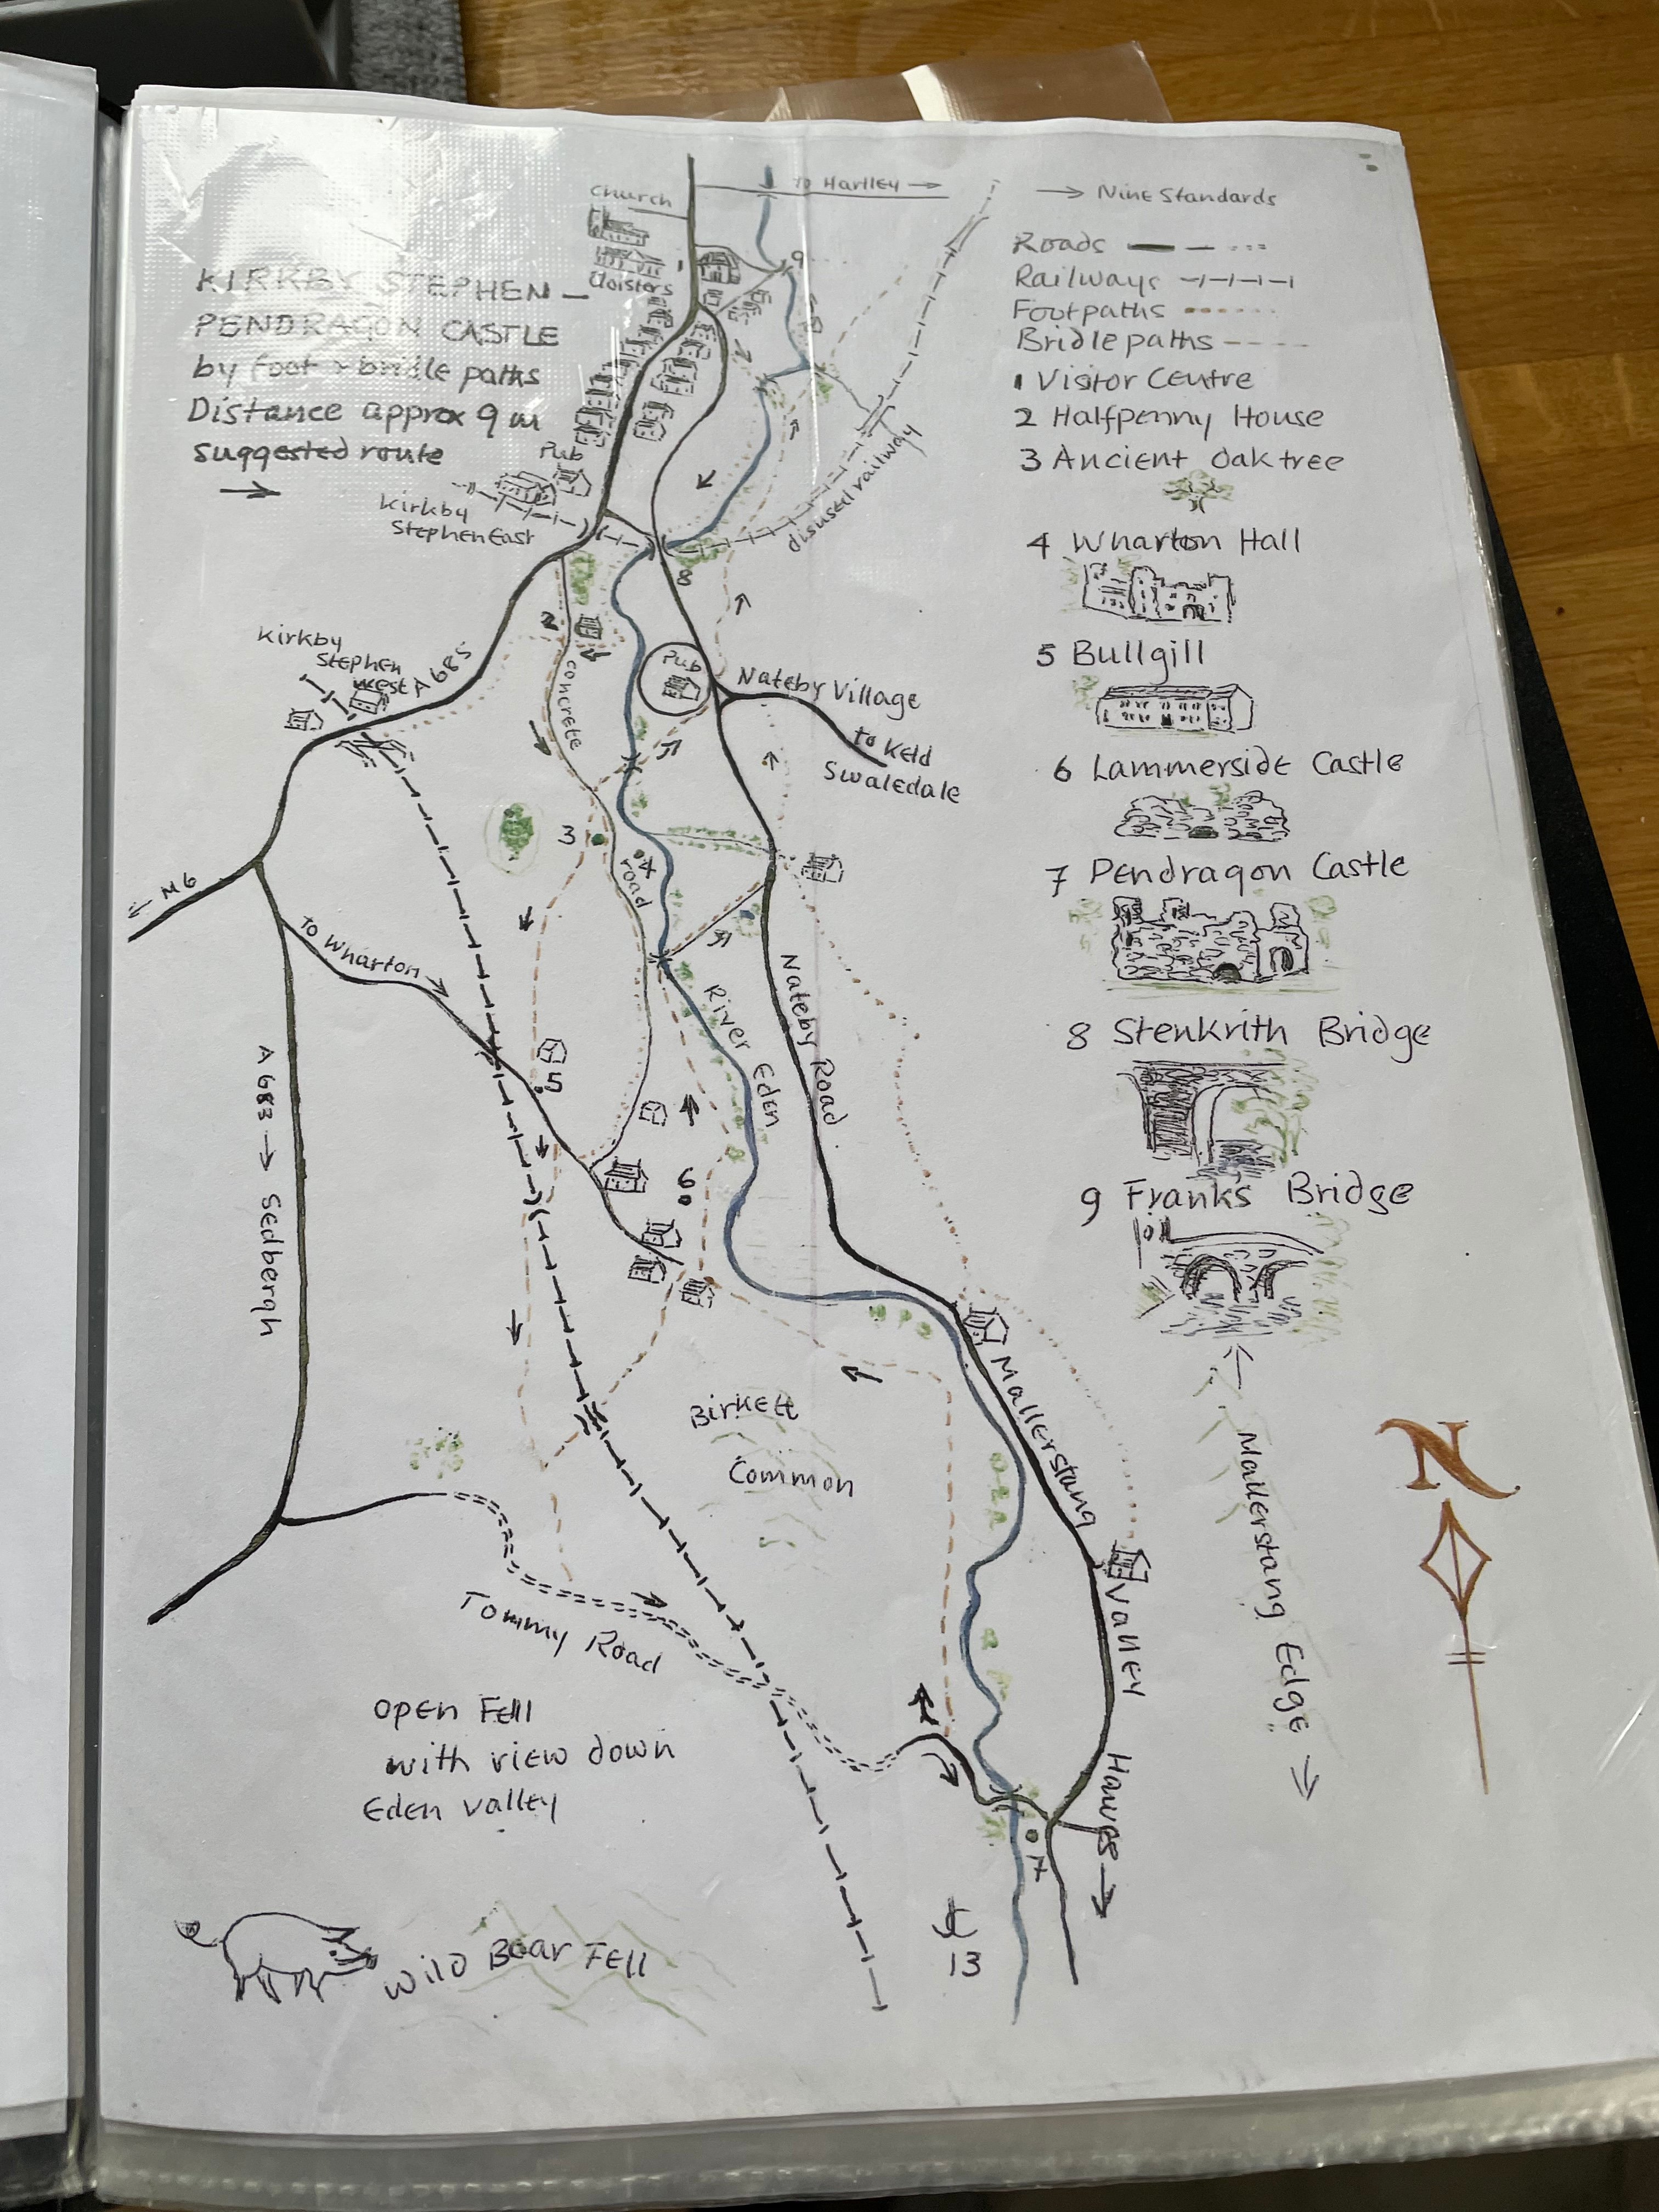 To Hartley →
→ Nine Standards
Church
Cloisters
KIRKBY STEPHEN –
PENDRAGON CASTLE
by foot & bridle paths
Distance approx 9 m
suggested route
→
Roads
Railways
Footpaths
Bridle paths
1 Visitor Centre
2 Halfpenny House
3 Ancient Oak tree
4 Wharton Hall
5 Bullgill
6 Lammerside Castle
7 Pendragon Castle
8 Stenkrith Bridge
9 Franks Bridge
1
9
Pub
Kirkby
Stephen East
disused railway
8
2
Kirkby
Stephen
West
A 685
concrete
road
Pub
Nateby Village
to Keld
Swaledale
3
4
← M6
to Wharton →
River Eden
Nateby Road
5
A 683 → Sedbergh
6
Mallerstang Valley
Birkett
Common
← Mallerstang Edge →
N
Tommy Road
open Fell
with view down
Eden valley
Hawes →
7
13
Wild Boar Fell